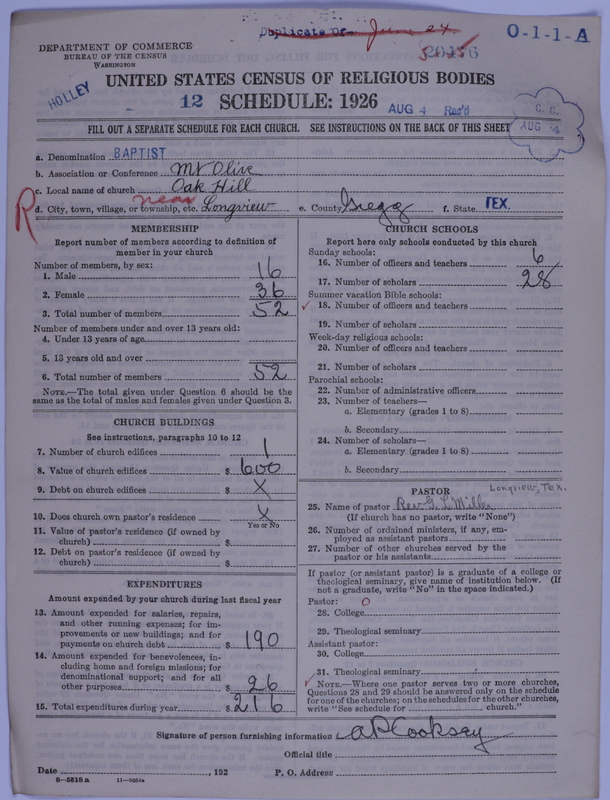 Duplicate Of June 24
O-1-1-A
DEPARTMENT OF COMMERCE
BUREAU OF THE CENSUS
WASHINGTON
HOLLEY
UNITED STATES CENSUS OF RELIGIOUS BODIES
12 SCHEDULE: 1926 AUG 4 Rec'd
C. C.
AUG 4
FILL OUT A SEPARATE SCHEDULE FOR EACH CHURCH. SEE INSTRUCTIONS ON THE BACK OF THIS SHEET
a. Denomination BAPTIST
b. Association or Conference Mt Olive
c. Local name of church Oak Hill
R
d. City, town, village, or township, etc. near Longview e. County Gregg f. State TEX.
MEMBERSHIP
Report number of members according to definition of
member in your church
Number of members, by sex:
1. Male 16
2. Female 36
3. Total number of members 52
Number of members under and over 13 years old:
4. Under 13 years of age
5. 13 years old and over
6. Total number of members 52
NOTE.—The total given under Question 6 should be the
same as the total of males and females given under Question 3.
CHURCH BUILDINGS
See instructions, paragraphs 10 to 12
7. Number of church edifices 1
8. Value of church edifices $ 600
9. Debt on church edifices $ X
10. Does church own pastor's residence X
Yes or No
11. Value of pastor's residence (if owned by
church) $
12. Debt on pastor's residence (if owned by
church) $
EXPENDITURES
Amount expended by your church during last fiscal year
13. Amount expended for salaries, repairs,
and other running expenses; for im-
provements or new buildings; and for
payments on church debt $ 190
14. Amount expended for benevolences, in-
cluding home and foreign missions; for
denominational support; and for all
other purposes $ 26
15. Total expenditures during year $ 216
CHURCH SCHOOLS
Report here only schools conducted by this church
Sunday schools:
16. Number of officers and teachers 6
17. Number of scholars 28
Summer vacation Bible schools:
18. Number of officers and teachers
19. Number of scholars
Week-day religious schools:
20. Number of officers and teachers
21. Number of scholars
Parochial schools:
22. Number of administrative officers
23. Number of teachers—
a. Elementary (grades 1 to 8)
b. Secondary
24. Number of scholars—
a. Elementary (grades 1 to 8)
b. Secondary
PASTOR Longview, Tex.
25. Name of pastor Rev. G. L. Mills
(If church has no pastor, write "None")
26. Number of ordained ministers, if any, em-
ployed as assistant pastors
27. Number of other churches served by the
pastor or his assistants
If pastor (or assistant pastor) is a graduate of a college or
theological seminary, give name of institution below. (If
not a graduate, write "No" in the space indicated.)
Pastor: O
28. College
29. Theological seminary
Assistant pastor:
30. College
31. Theological seminary
NOTE.—Where one pastor serves two or more churches,
Questions 28 and 29 should be answered only on the schedule
for one of the churches; on the schedules for the other churches,
write "See schedule for church."
Signature of person furnishing information A P Cooksey
Official title
Date , 192 P. O. Address
8—5518 a 11—9034a